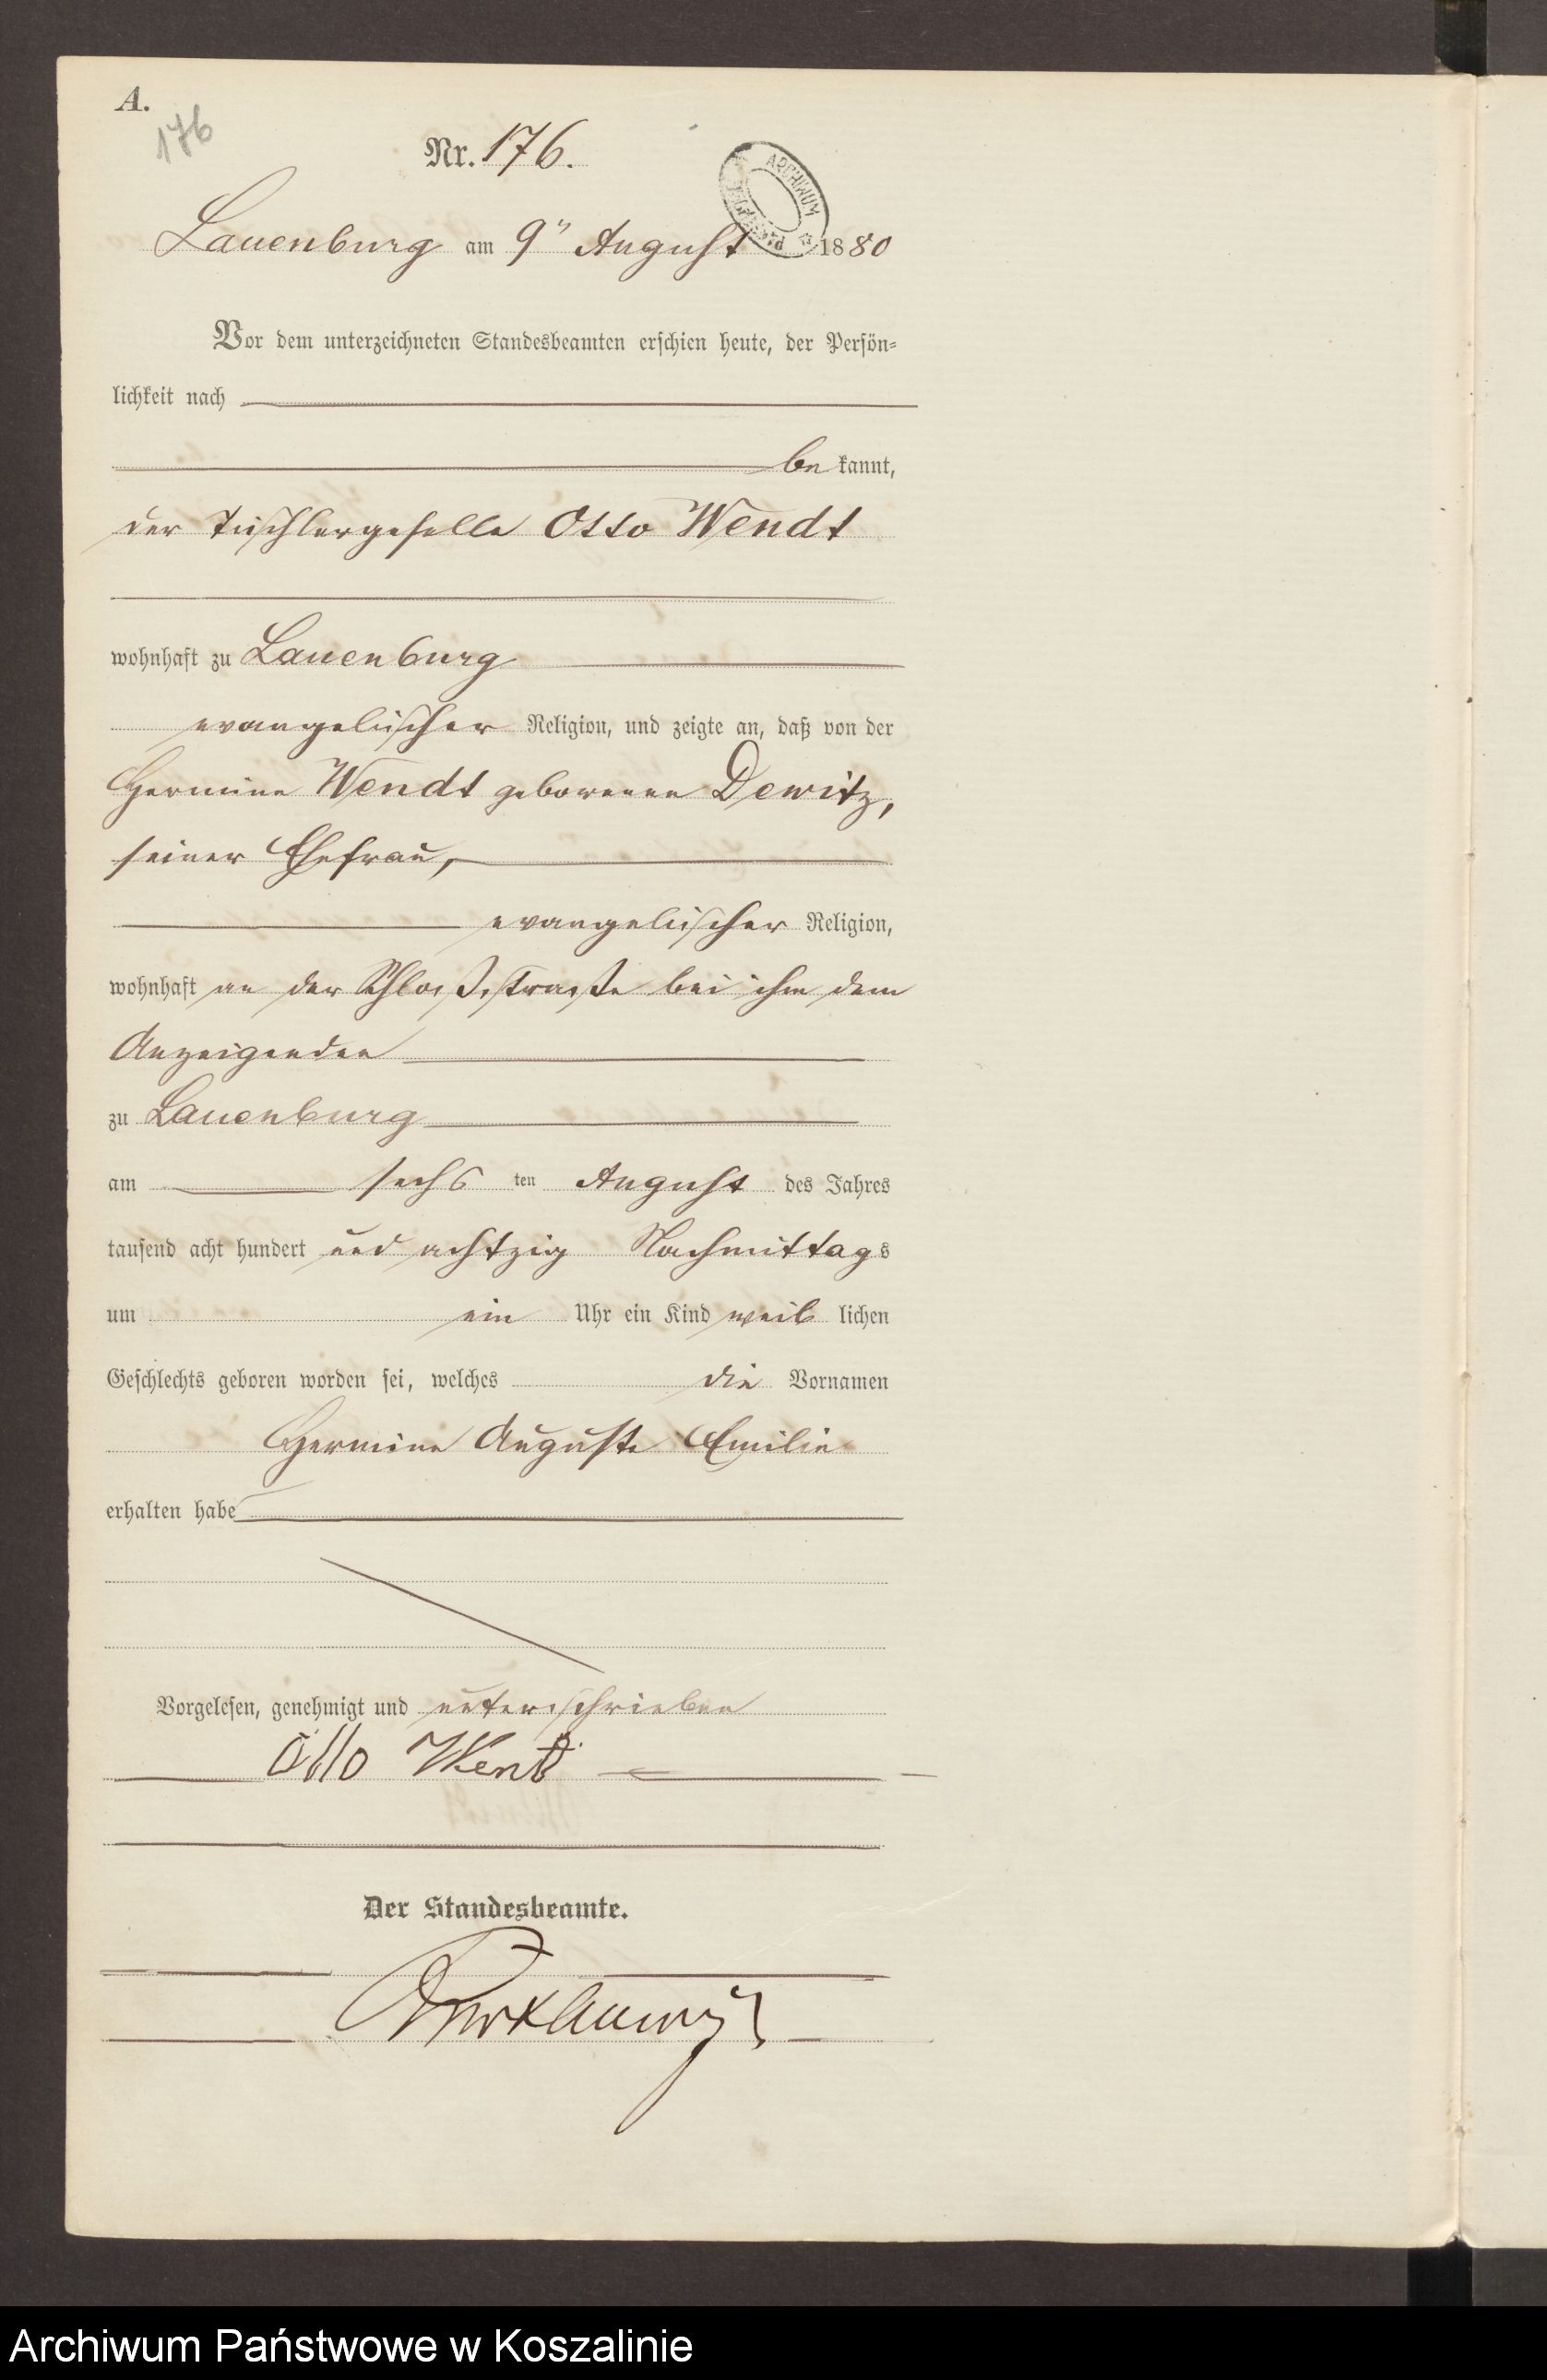 A.
176
Nr. 176.
ARCHIWUM
Lauenburg am 9" August 1880
Vor dem unterzeichneten Standesbeamten erschien heute, der Persön-
lichkeit nach
be kannt,
der Tischlergeselle Otto Wendt
wohnhaft zu Lauenburg
evangelischer Religion, und zeigte an, daß von der
Hermine Wendt geborenen Dewitz,
seiner Ehefrau,
evangelischer Religion,
wohnhaft an der Schloßstraße bei ihm dem
Anzeigenden
zu Lauenburg
am sechs ten August des Jahres
tausend acht hundert und achtzig Nachmittags
um ein Uhr ein Kind weib lichen
Geschlechts geboren worden sei, welches die Vornamen
Hermine Auguste Emilie
erhalten habe
Vorgelesen, genehmigt und unterschrieben
Otto Went
Der Standesbeamte.
Archiwum Państwowe w Koszalinie